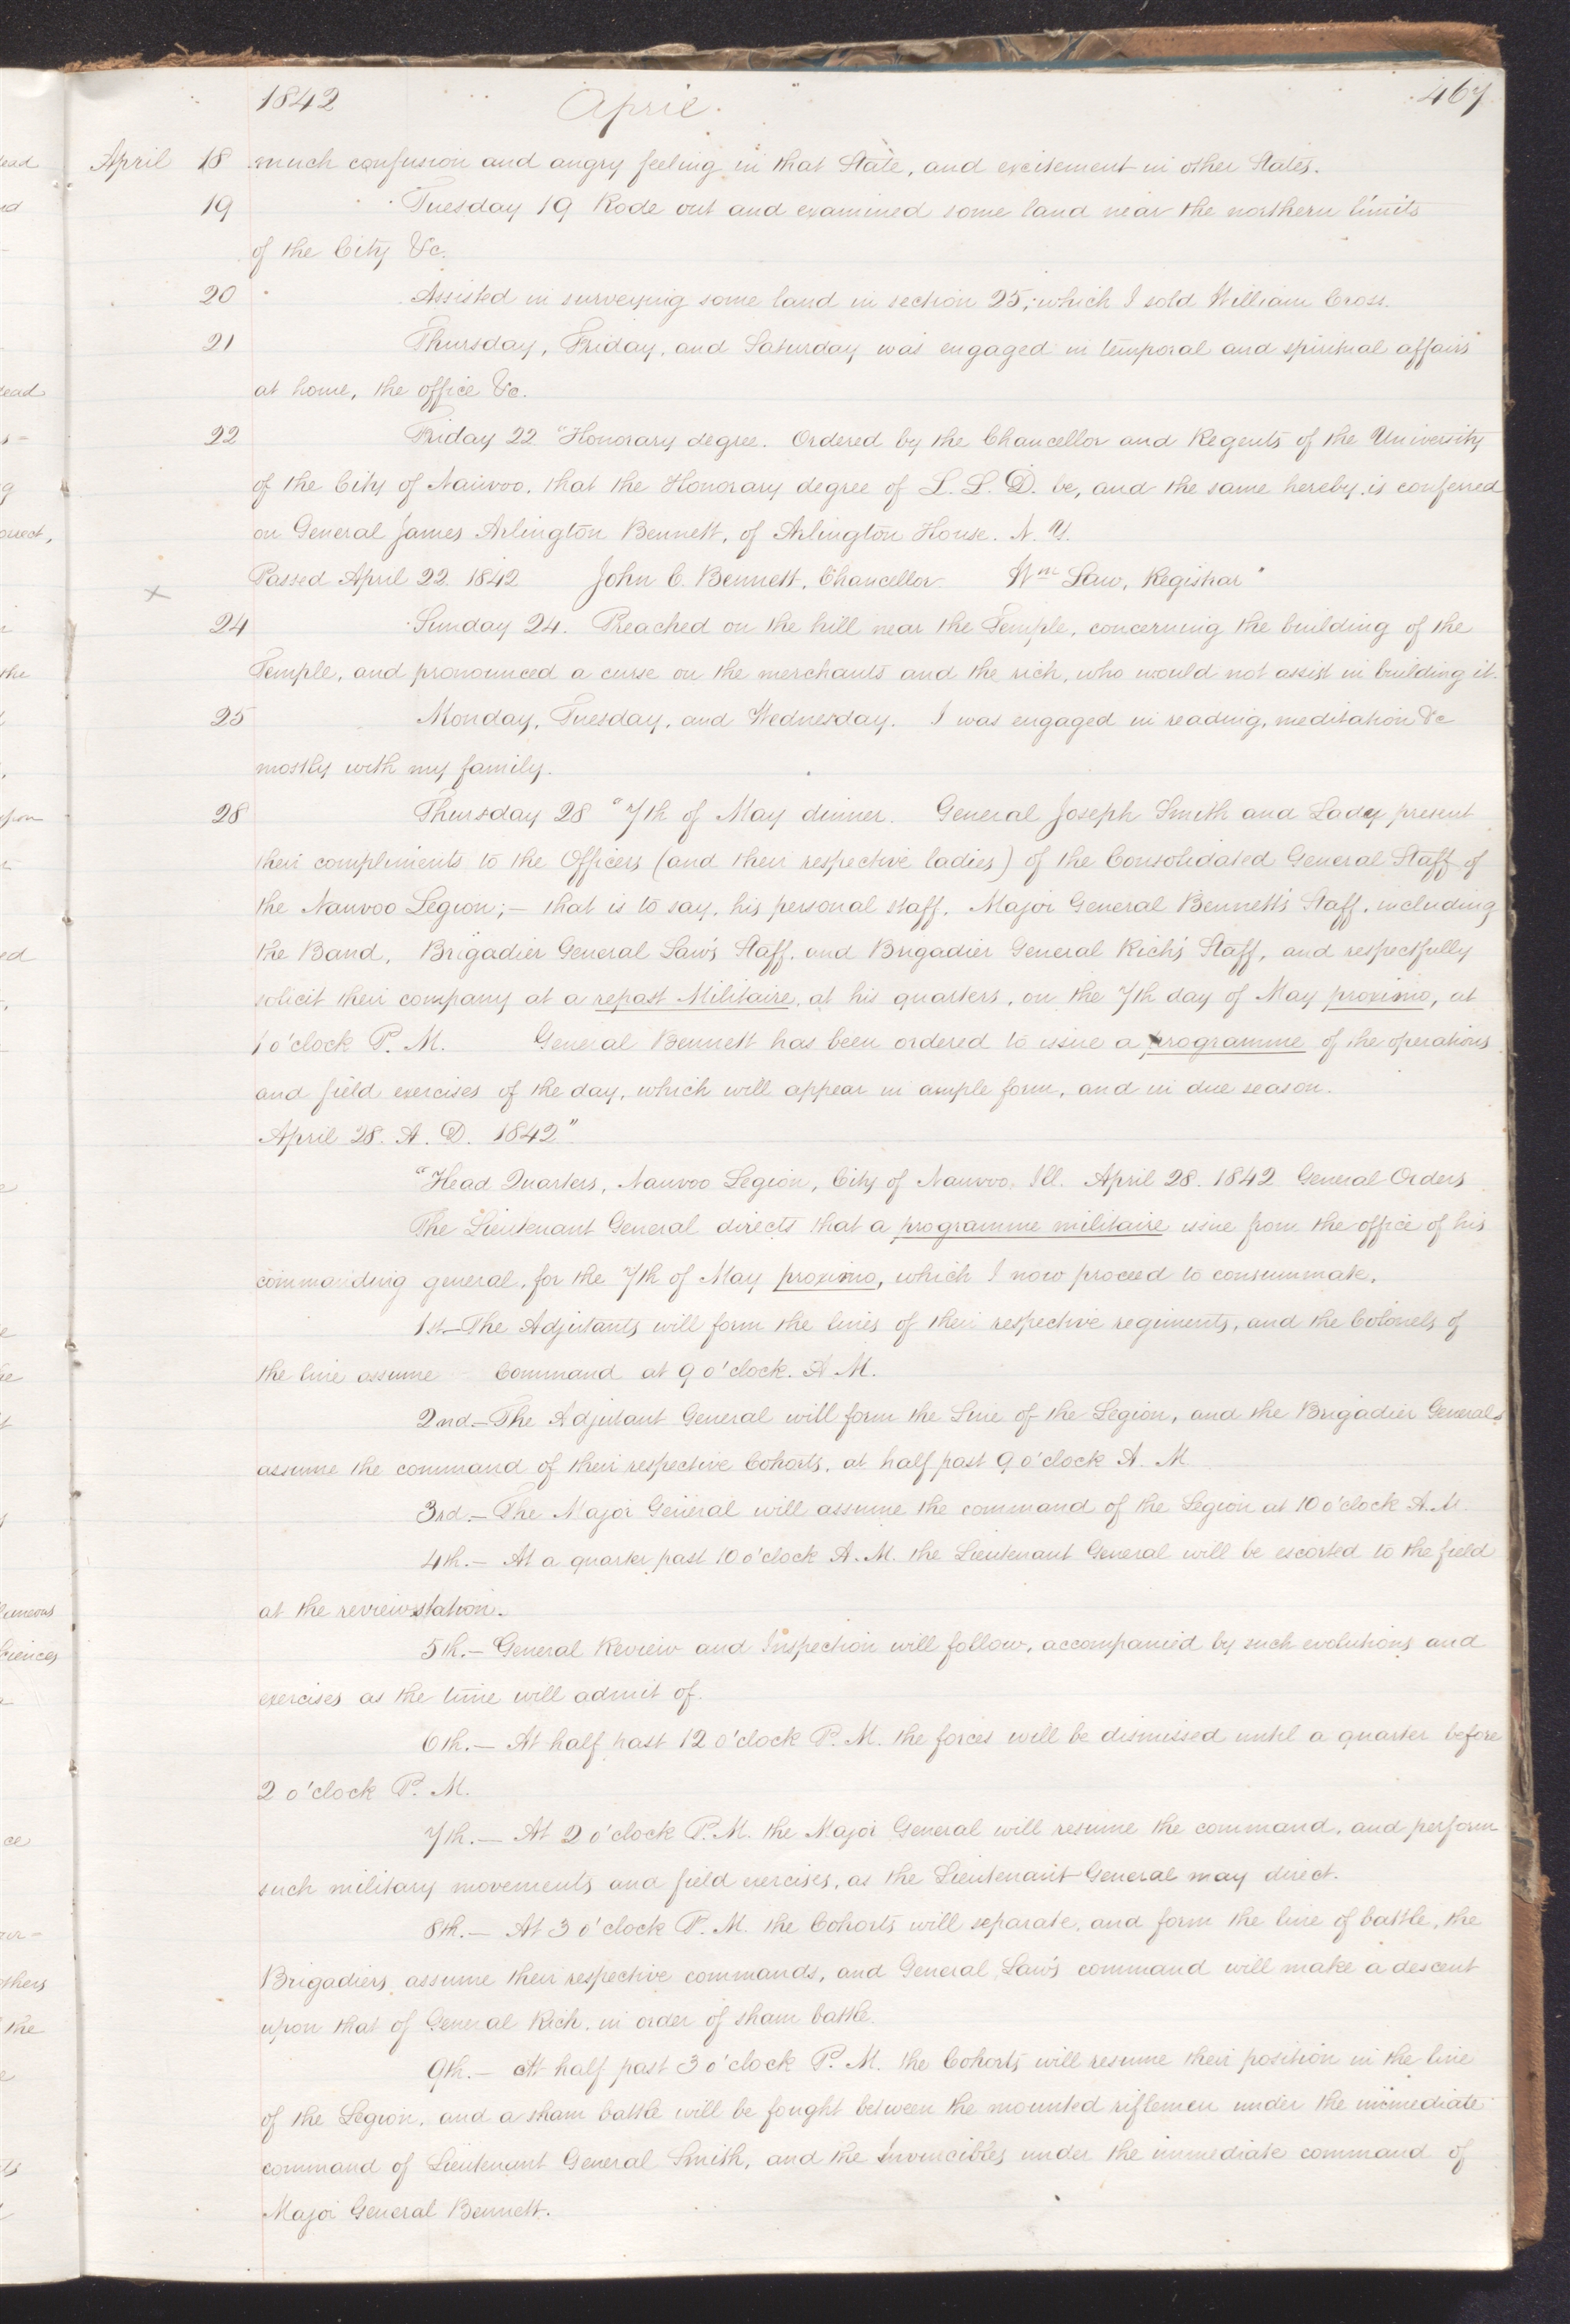 1842 April. 467
April 18 much confusion and angry feeling in that State, and excitement in other States.
19 Tuesday 19 Rode out and examined some land near the northern limits
of the City &c.
20 Assisted in surveying some land in section 25, which I sold William Cross.
21 Thursday, Friday, and Saturday was engaged in temporal and spiritual affairs
at home, the office &c.
22 Friday 22 "Honorary degree. Ordered by the Chancellor and Regents of the University
of the City of Nauvoo, that the Honorary degree of L. L. D. be, and the same hereby is conferred
on General James Arlington Bennett, of Arlington House. N. Y.
Passed April 22. 1842 John C. Bennett, Chancellor. Wm Law, Registrar"
24 Sunday 24. Preached on the hill near the Temple, concerning the building of the
Temple, and pronounced a curse on the merchants and the rich, who would not assist in building it.
25 Monday, Tuesday, and Wednesday. I was engaged in reading, meditation &c
mostly with my family.
28 Thursday 28 "7th of May dinner. General Joseph Smith and Lady present
their compliments to the Officers (and their respective ladies) of the Consolidated General Staff of
the Nauvoo Legion;— that is to say, his personal staff, Major General Bennett's Staff, including
the Band, Brigadier General Law's Staff, and Brigadier General Rich's Staff, and respectfully
solicit their company at a repast Militaire, at his quarters, on the 7th day of May proximo, at
1 o'clock P. M. General Bennett has been ordered to issue a programme of the operations
and field exercises of the day, which will appear in ample form, and in due season.
April 28. A. D. 1842"
"Head Quarters, Nauvoo Legion, City of Nauvoo, Ill. April 28. 1842 General Orders
The Lieutenant General directs that a programme militaire issue from the office of his
commanding general, for the 7th of May proximo, which I now proceed to consummate.
1st.—The Adjutants will form the lines of their respective regiments, and the Colonels of
the line assume Command at 9 o'clock. A. M.
2nd—The Adjutant General will form the Line of the Legion, and the Brigadier Generals
assume the command of their respective Cohorts, at half past 9 o'clock A. M
3rd.—The Major General will assume the command of the Legion at 10 o'clock A. M.
4th.— At a quarter past 10 o'clock A. M. the Lieutenant General will be escorted to the field
at the review station.
5th.— General Review and Inspection will follow, accompanied by such evolutions and
exercises as the time will admit of.
6th.— At half past 12 o'clock P. M. the forces will be dismissed until a quarter before
2 o'clock P. M.
7th.— At 2 o'clock P. M. the Major General will resume the command, and perform
such military movements and field exercises, as the Lieutenant General may direct.
8th.— At 3 o'clock P. M. the Cohorts will separate, and form the line of battle, the
Brigadiers assume their respective commands, and General Law's command will make a descent
upon that of General Rich, in order of sham battle.
9th.— At half past 3 o'clock P. M. the Cohorts will resume their position in the line
of the Legion, and a sham battle will be fought between the mounted riflemen under the immediate
command of Lieutenant General Smith, and the Invincibles under the immediate command of
Major General Bennett.